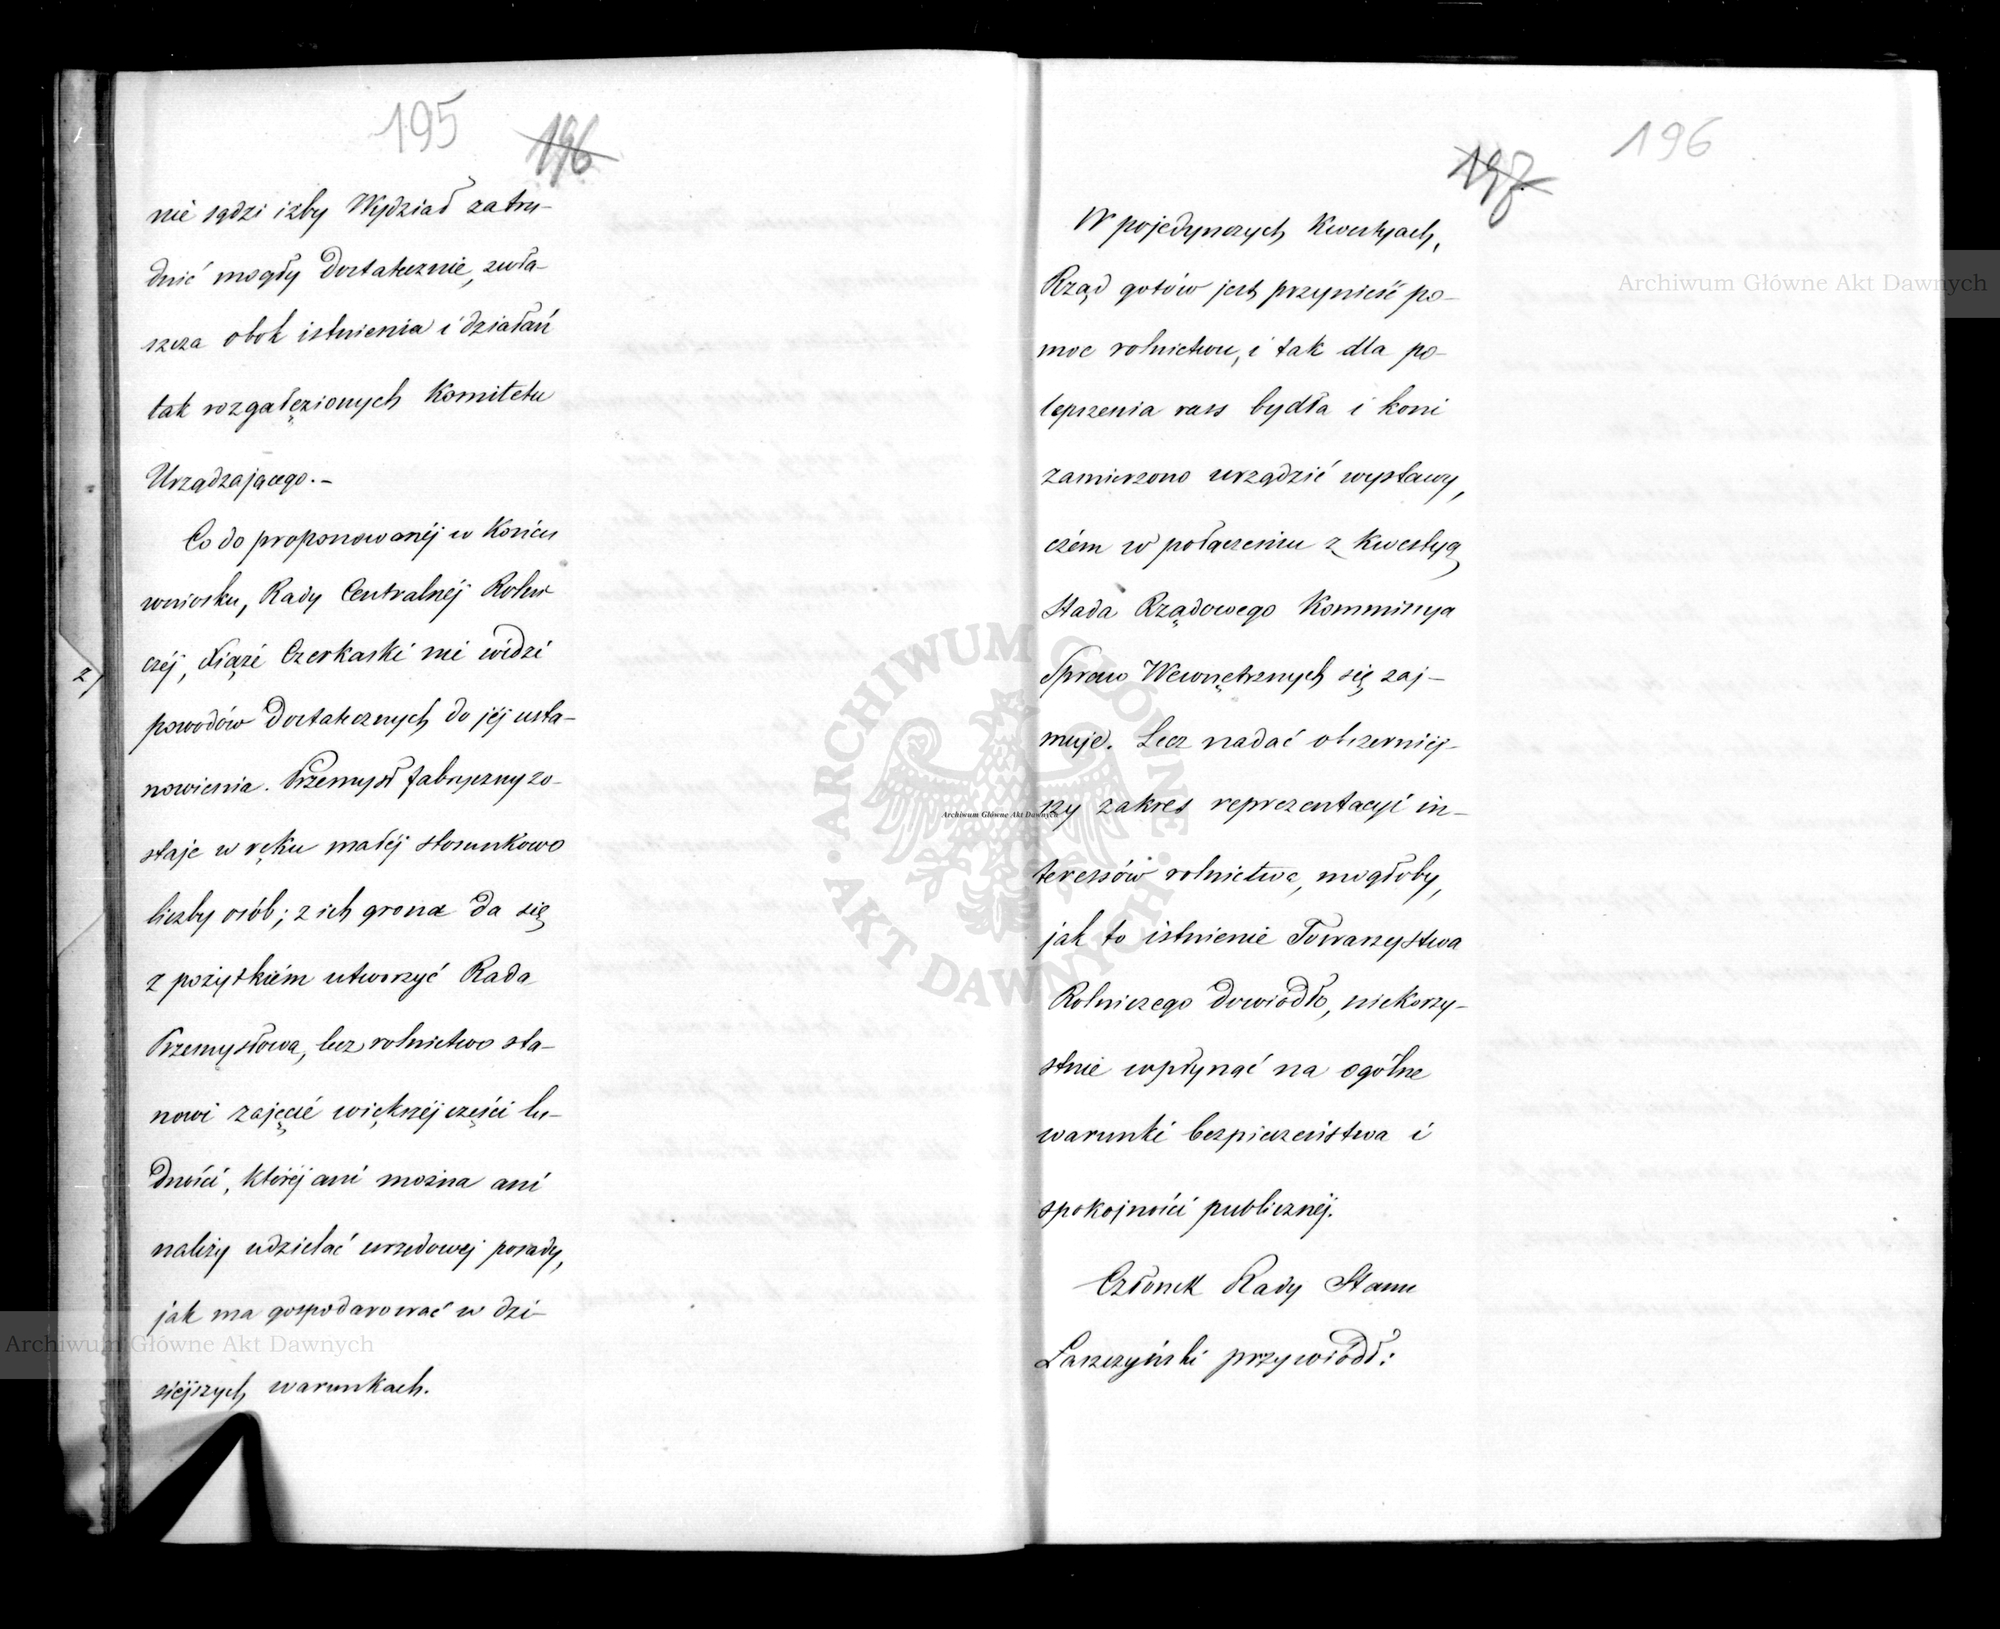 195
196
nie sądzi iżby Wydział zatru-
dnić mogły dostatecznie, zwła-
szcza obok istnienia i działań
tak rozgałęzionych Komitetu
Urządzającego.-
Co do proponowanéj w Końcu
wniosku, Rady Centralnéj Rolni
czéj, Xiąże Czerkaski nie widzi
powodów dostatecznych do jéj usta-
nowienia. Przemysł fabryczny zo-
staje w ręku małéj stosunkowo
liczby osób; z ich grona da się
z pożytkiem utworzyć Rada
Przemysłowa, lecz rolnictwo sta-
nowi zajęcie większéj części lu-
dności, któréj ani można ani
należy udzielać urzędowej porady,
jak ma gospodarować w dzi-
siejszych warunkach.
2)
197
196
W pojedynczych Kwestyach,
Rząd gotów jest przynieść po-
moc rolnictwu, i tak dla po-
lepszenia rass bydła i koni
zamierzono urządzić wystawy,
czém w połączeniu z Kwestyą
Stada Rządowego Kommissya
Spraw Wewnętrznych się zaj-
muje. Lecz nadać obszerniéj-
szy zakres reprezentacyi in-
teressów rolnictwa, mogłoby,
jak to istnienie Towarzystwa
Rolniczego dowiodło, niekorzy-
stnie wpłynąć na ogólne
warunki bezpieczeństwa i
spokojności publicznéj.
Członek Rady Stanu
Łaszczyński przywiódł:
Archiwum Główne Akt Dawnych
Archiwum Główne Akt Dawnych
Archiwum Główne Akt Dawnych
ARCHIWUM GŁÓWNE · AKT DAWNYCH ·